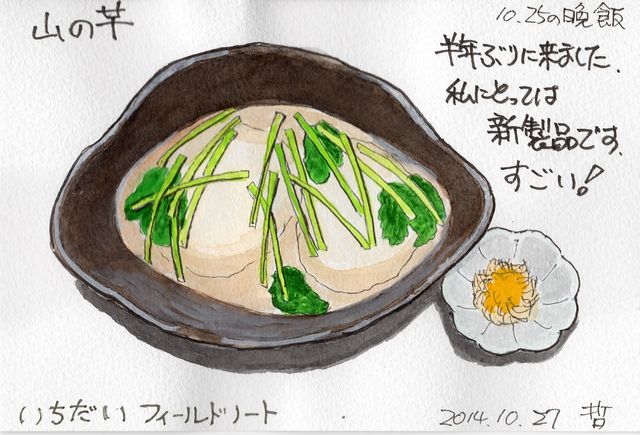 山の芋
10.25の晩飯
半年ぶりに来ました.
私にとっては
新製品です.
すごい!
いちだい フィールドノート
2014.10.27 哲